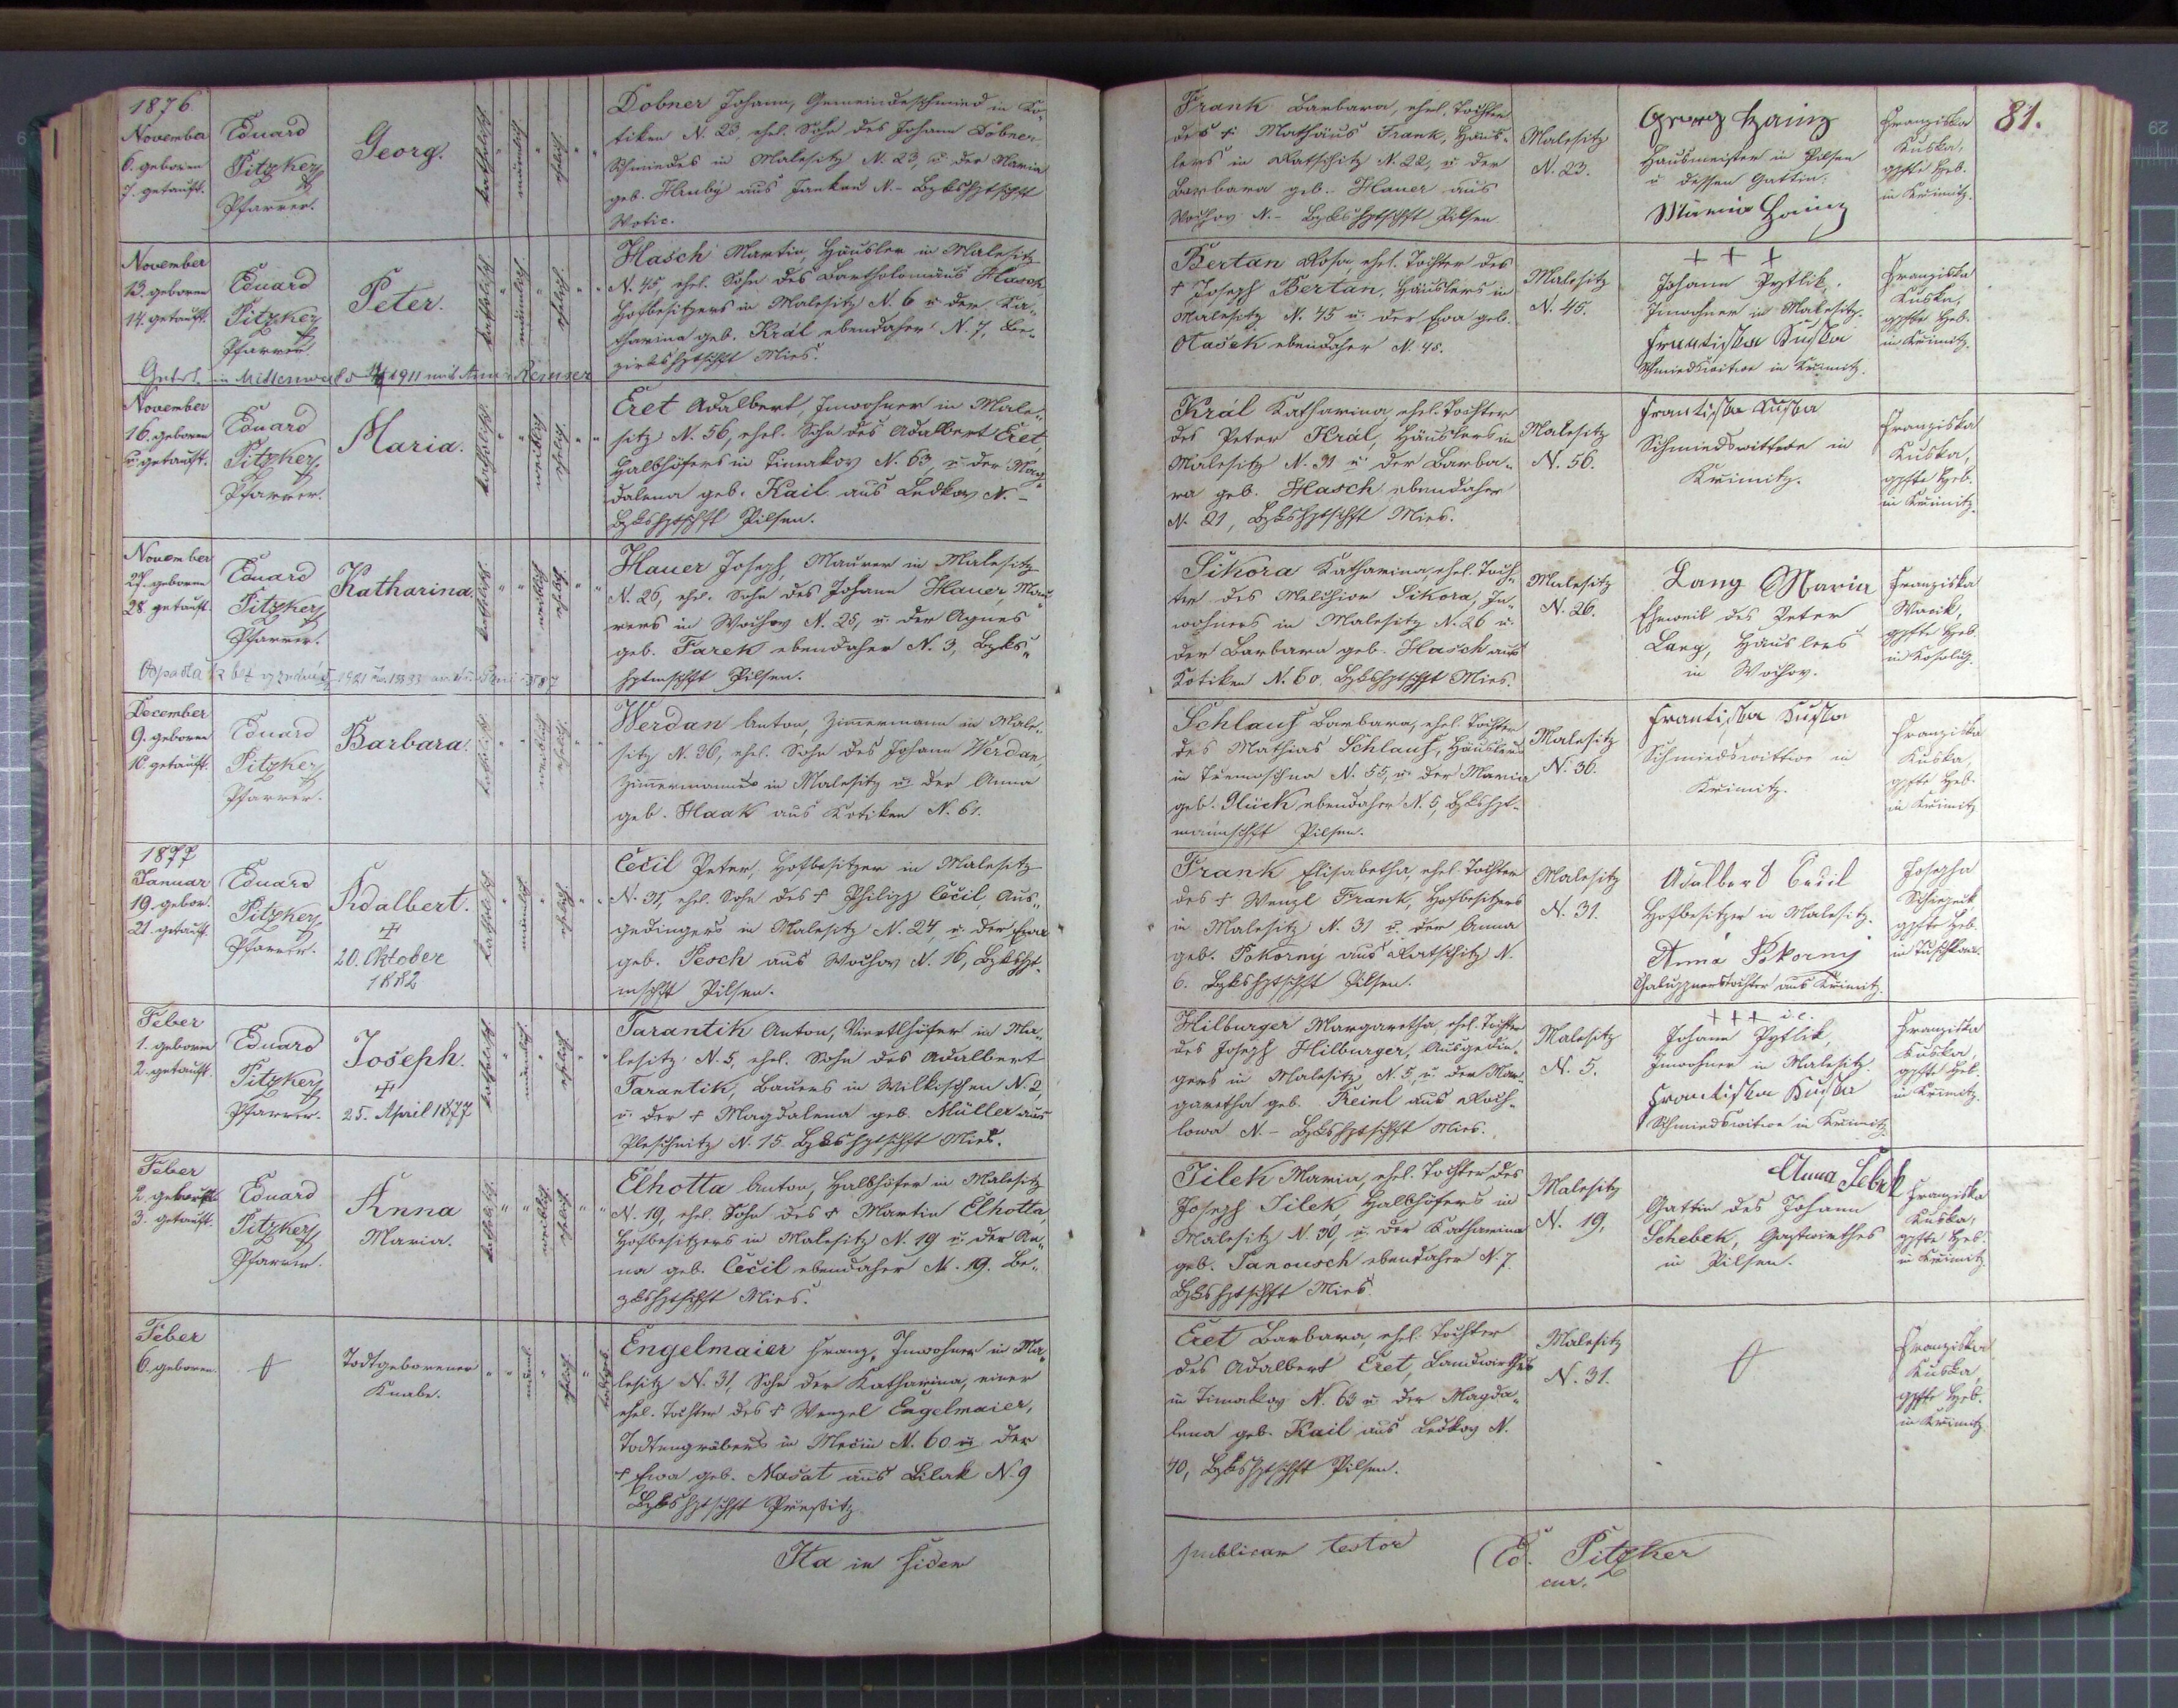 81.
1876.
November
6. geboren
7. getauft.
Eduard
Pitzker,
Pfarrer.
Georg.
katholisch
männlich
ehelich.
Dobner Johann, Gemeindeschmied in Ko-
tiken N. 23, ehel. Sohn des Johann Dobner,
Schmiedes in Malesitz N. 23, u. der Maria
geb. Hrubý aus Jankau N.- Bzkshptschft
Votic.
Frank Barbara, ehel. Tochter
des † Mathäus Frank, Häus-
lers in Ratschitz N. 22, u. der
Barbara geb. Hauer aus
Wochov N.- Bzkshptschft Pilsen
Malesitz
N. 23.
Georg Hainz
Hausmeister in Pilsen
u dessen Gattin.
Maria Hainz
Franziska
Kuska,
gpfte Heb.
in Krimitz.
November
13. geboren
14. getauft.
Eduard
Pitzker
Pfarrer.
Peter.
katholisch
männlich
ehelich.
Hasch Martin, Häusler in Malesitz
N. 45, ehel. Sohn des Bartholomäus Hasch,
Hofbesitzers in Malesitz N. 6 u der Ka-
tharina geb. Král ebendaher N. 7, Be-
zirkshptschft Mies.
in Mittenwald 1911 mit
Bertan Rosa, ehel. Tochter des
† Joseph Bertan, Häuslers in
Malesitz N. 45 u. der Eva geb.
Otasek ebendaher N. 45.
Malesitz
N. 45.
+ + +
Johann Pytlik,
Inwohner in Malesitz.
Frantiska Kuska
Schmiedswitwe in Krimitz.
Franziska
Kuska,
gpfte Heb.
in Krimitz.
November
16. geboren
u. getauft.
Eduard
Pitzker,
Pfarrer.
Maria.
katholisch
weiblich
ehelich.
Eret Adalbert, Inwohner in Male-
sitz N. 56, ehel. Sohn des Adalbert Eret,
Halbhöfers in Timakov N. 63, u. der Mag-
dalena geb. Kail aus Ledkov N. -
Bzkshptschft Pilsen.
Král Katharina, ehel. Tochter
des Peter Král, Häuslers in
Malesitz N. 31 u der Barba-
ra geb. Hasch ebendaher
N. 21, Bzkshptschft Mies.
Malesitz
N. 56.
Frantiska Kuska
Schmiedswittwe in
Krimitz.
Franziska
Kuska,
gpfte Heb.
in Krimitz.
November
27. geboren
28. getauft.
Eduard
Pitzker,
Pfarrer.
Katharina.
katholisch
weiblich
ehelich.
Hauer Joseph, Maurer in Malesitz
N. 26, ehel. Sohn des Johann Hauer, Mau-
rers in Wochov N. 25, u. der Agnes
geb. Farek ebendaher N. 3, Bzks-
hptmschft Pilsen.
Sikora Katharina, ehel. Toch-
ter des Melchior Sikora, In-
wohners in Malesitz N. 26 u.
der Barbara geb. Hasch aus
Kotiken N. 60. Bzkshptschft Mies.
Malesitz
N. 26.
Lang Maria
Eheweib des Peter
Lang, Häuslers
in Wochov.
Franziska
Wacik,
gpfte Heb.
in Kosolup.
December
9. geboren
10. getauft.
Eduard
Pitzker,
Pfarrer.
Barbara.
katholisch
weiblich
ehelich.
Werdan Anton, Zimmermann in Male-
sitz N. 36, ehel. Sohn des Johann Werdan,
Zimmermannes in Malesitz u. der Anna
geb. Haak aus Kotiken N. 61.
Schlauf Barbara, ehel. Tochter
des Mathias Schlauf, Häuslers
in Tremoschna N. 55, u. der Maria
geb. Glück ebendaher N. 5, Bzkshpt-
mannschft Pilsen.
Malesitz
N. 36.
Frantiska Kuska
Schmiedswittwe in
Krimitz.
Franziska
Kuska,
gpfte Heb.
in Krimitz
1877
Januar
19. gebor.
21. getauft.
Eduard
Pitzker,
Pfarrer.
Adalbert.
†
20. Oktober
1882
katholisch
männlich
ehelich
Cecil Peter, Hofbesitzer in Malesitz
N. 31, ehel. Sohn des † Philipp Cecil, Aus-
gedingers in Malesitz N. 24, u. der Eva
geb. Pesch aus Wochov N. 16, Bzkshpt-
mschft Pilsen.
Frank Elisabetha, ehel. Tochter
des † Wenzl Frank, Hofbesitzers
in Malesitz N. 31 u. der Anna
geb. Pokorný aus Ratschitz N.
6. Bzkshptschft Pilsen.
Malesitz
N. 31.
Adalbert Cecil
Hofbesitzer in Malesitz.
Anna Pokorny
Chaluppnerstochter aus Krimitz.
Josepha
gpfte Heb.
in Tuschkau.
Feber
1. geboren
2. getauft.
Eduard
Pitzker,
Pfarrer.
Joseph.
†
25. April 1877
katholisch
männlich
ehelich
Tarantik Anton, Viertlhöfer in Ma-
lesitz N. 5, ehel. Sohn des Adalbert
Tarantik, Bauers in Wilkischen N. 2,
u. der † Magdalena geb. Müller aus
Pleschnitz N. 15 Bzkshptschft Mies.
Hilburger Margaretha, ehel. Tochter
des Joseph Hilburger, Ausgedin-
gers in Malesitz N. 5, u. der Mar-
garetha geb. Reinl aus Roch-
lowa N. - Bzkshptschft Mies.
Malesitz
N. 5.
+ + + i.e.
Johann Pytlik,
Inwohner in Malesitz.
Frantiska Kuska
Schmiedswitwe in Krimitz.
Franziska
Kuska,
gpfte Heb.
in Krimitz.
Feber
2. geboren
3. getauft.
Eduard
Pitzker,
Pfarrer.
Anna
Maria.
katholisch
weiblich
ehelich
Elhotta Anton, Halbhöfer in Malesitz
N. 19, ehel. Sohn des † Martin Elhotta,
Hofbesitzers in Malesitz N. 19 u. der An-
na geb. Cecil ebendaher N. 19. Be-
zkshptschft Mies.
Jilek Maria, ehel. Tochter des
Joseph Jilek, Halbhöfers in
Malesitz N. 30, u. der Katharina
geb. Janousch ebendaher N. 7
Bzkshptschft Mies
Malesitz
N. 19,
Anna Sebek
Gattin des Johann
Schebek, Gastwirthes
in Pilsen.
Franziska
Kuska,
gpfte Heb.
in Krimitz
Feber
6. geboren.
Todtgeborener
Knabe.
männl.
ehelich.
todtgeb.
Engelmaier Franz, Inwohner in Ma-
lesitz N. 31, Sohn der Katharina, einer
ehel. Tochter des † Wenzel Engelmaier,
Todtengräbers in Mecin N. 60 u der
† Ewa geb. Masat aus Bilak N. 9
Bzkshptschft Prestitz.
Eret Barbara, ehel. Tochter
des Adalbert Eret, Landwirthes
in Timakov N. 63 u. der Magda-
lena geb. Kail aus Ledkov N.
40, Bzkshptschft Pilsen.
Malesitz
N. 31.
Franziska
Kuska,
gpfte Heb.
in Krimitz.
Ita in fidem
publicam testor
Ed. Pitzker
cur.